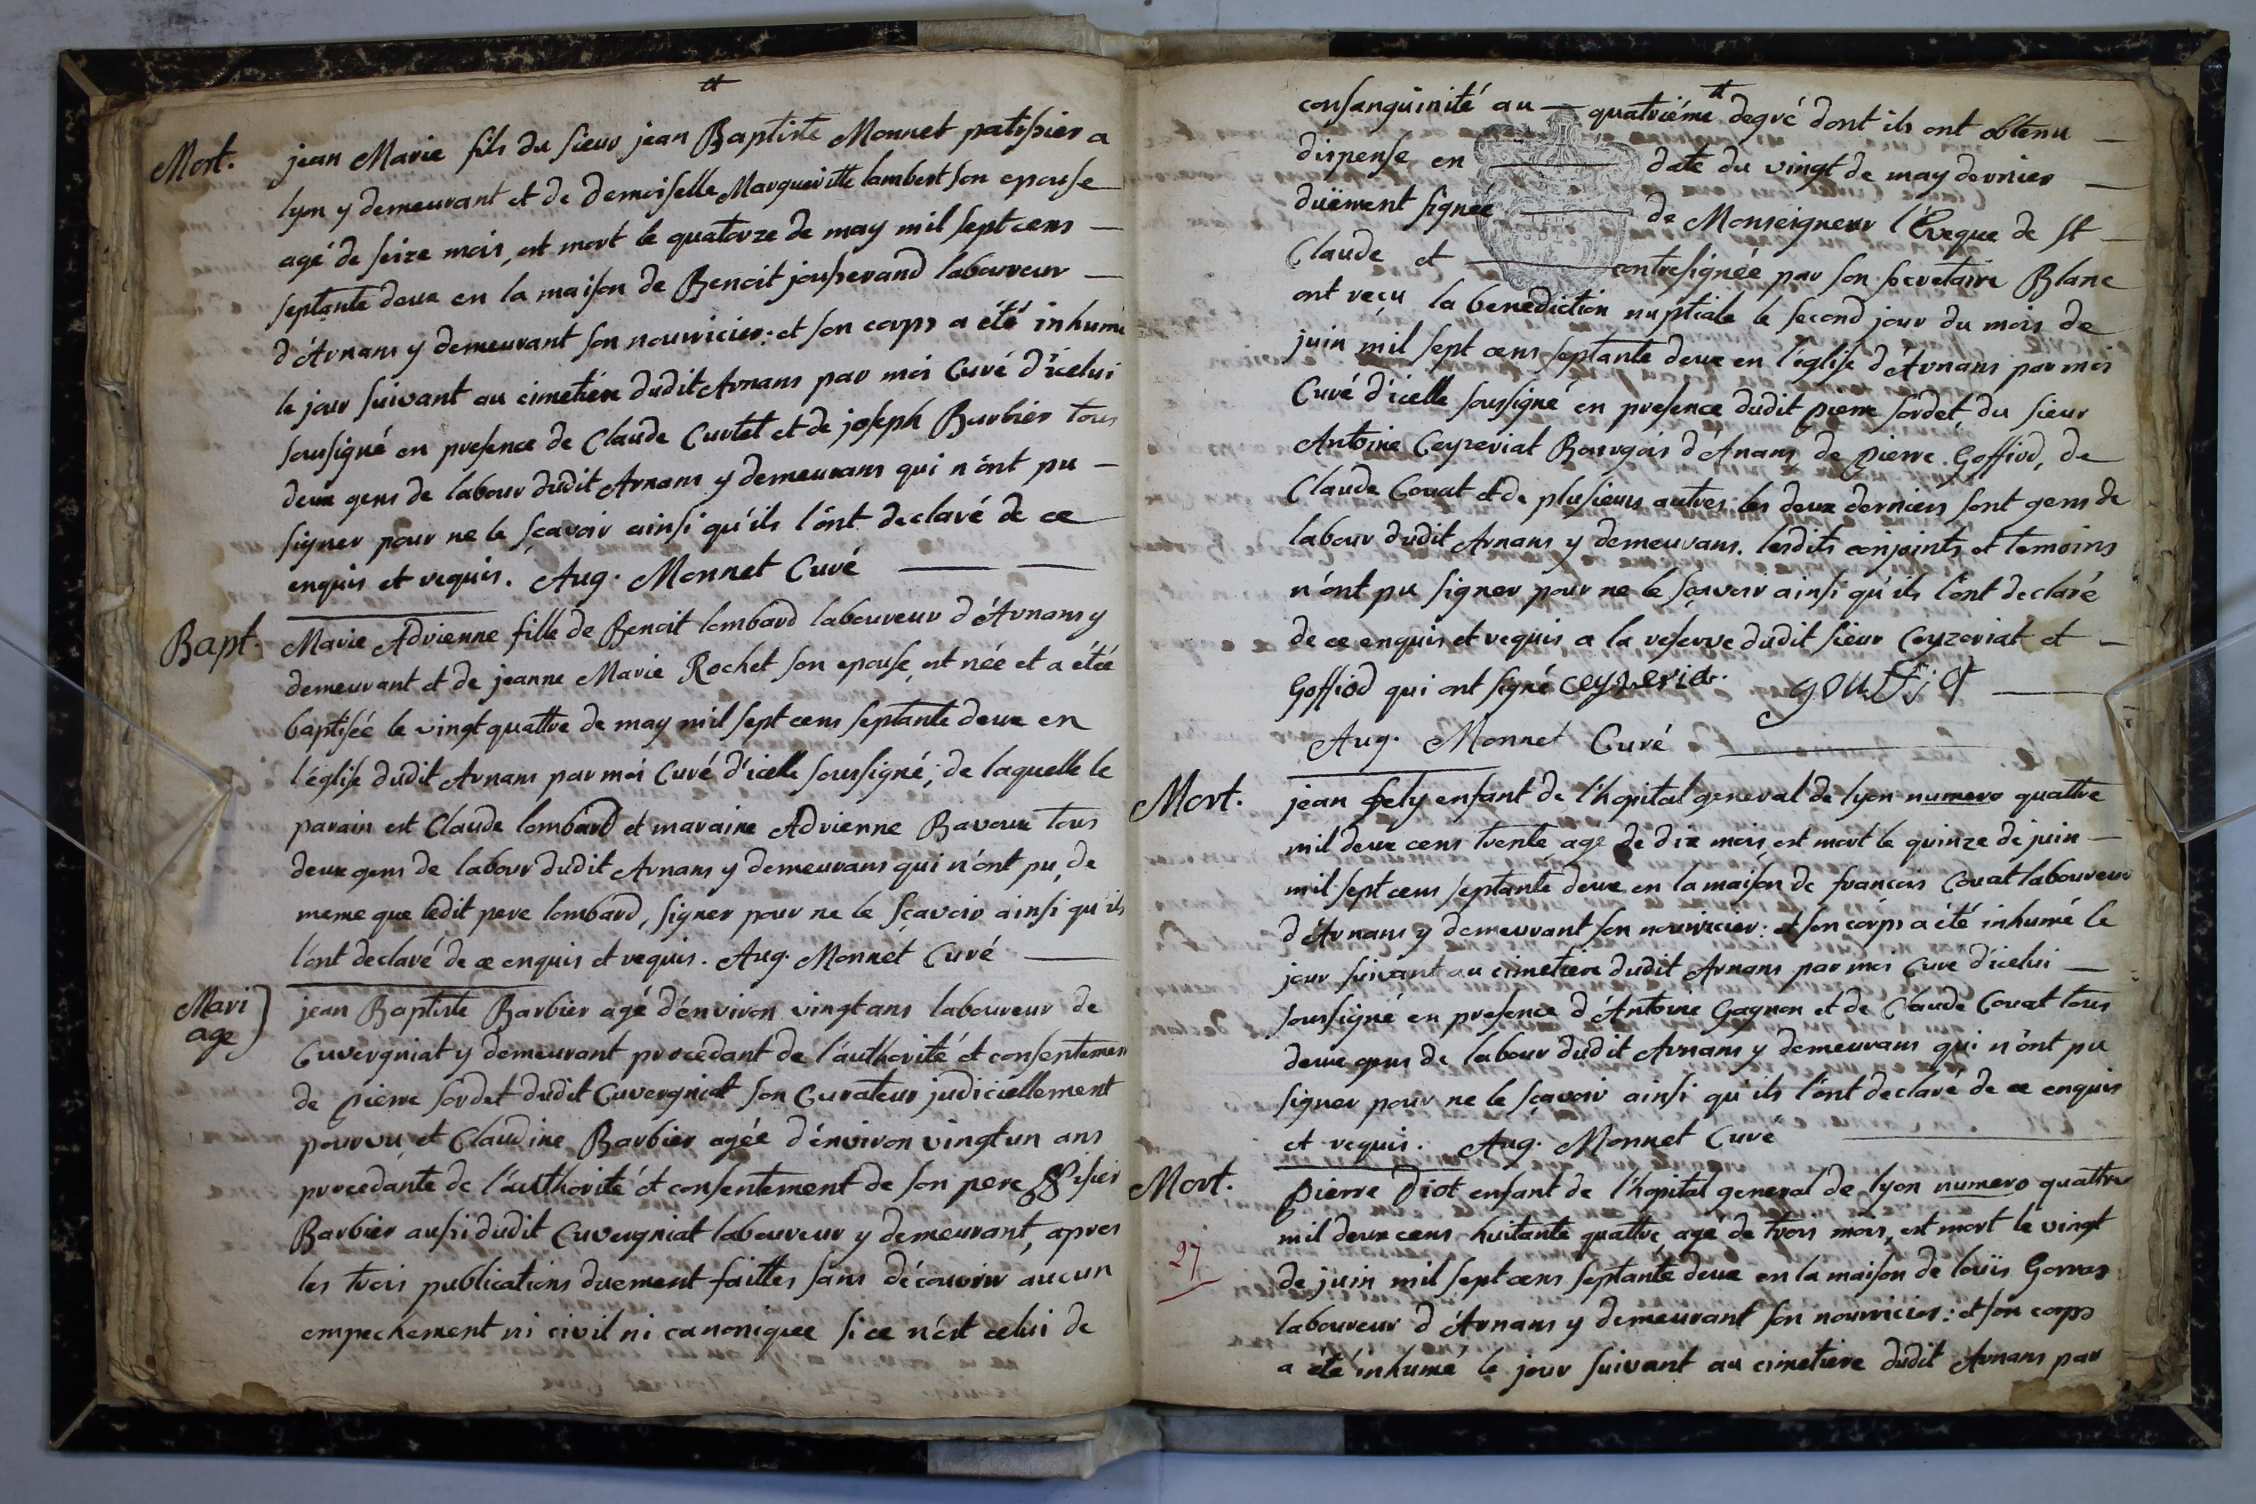 Mort.
jean Marie fils du sieur jean Baptiste Monnet patissier a
lyon y demeurant et de demoiselle Margueritte lambert son epouse
agé de seize mois, est mort le quatorze de may mil sept cens
septante deux en la maison de Benoit jousserand laboureur
d'Arnans y demeurant son nourricier: et son corps a été inhumé
le jour suivant au cimetiere dudit Arnans par moi Curé d'icelui
soussigné en presence de Claude Curtet et de joseph Barbier tous
deux gens de labour dudit Arnans y demeurans qui n'ont pu
signer pour ne le sçavoir ainsi qu'ils l'ont declaré de ce
enquis et requis. Aug. Monnet Curé
Bapt.
Marie Adrienne fille de Benoit lombard laboureur d'Arnans y
demeurant et de jeanne Marie Rochet son epouse, est née et a étée
baptisée le vingt quattre de may mil sept cens septante deux en
l'église dudit Arnans par moi Curé d'icelle soussigné; de laquelle le
parain est Claude lombard et maraine Adrienne Bavoux tous
deux gens de labour dudit Arnans y demeurans qui n'ont pu, de
meme que ledit pere lombard, signer pour ne le sçavoir ainsi qu'ils
l'ont declaré de ce enquis et requis. Aug. Monnet Curé
Mari
age
jean Baptiste Barbier agé d'environ vingt ans laboureur de
Cuvergniat y demeurant procedant de l'authorité et consentemen
de pierre sordet dudit Cuvergniat son Curateur judiciellement
pourvu, et Claudine Barbier agée d'environ vingt un ans
procedante de l'authorité et consentement de son pere
Barbier aussi dudit Cuvergniat laboureur y demeurant, apres
les trois publications duement faittes sans découvrir aucun
empechement ni civil ni canonique si ce n'est celui de
consanguinité au quatriéme degré dont ils ont obtenu
dispense en date du vingt de may dernier
duëment signée de Monseigneur l'Eveque de St
Claude et contresignée par son secretaire Blanc
ont reçu la benediction nuptiale le second jour du mois de
juin mil sept cens septante deux en l'église d'Arnans par moi
Curé d'icelle soussigné en presence dudit pierre sordet, du sieur
Antoine Ceyzeriat Bourgois d'Anans, de pierre Goffiod, de
Claude Couat et de plusieurs autres: les deux derniers sont gens de
labour dudit Arnans y demeurans. lesdits conjoints et temoins
n'ont pu signer pour ne le sçavoir ainsi qu'ils l'ont declaré
de ce enquis et requis, a la reserve dudit sieur Ceyzeriat et
Goffiod qui ont signé ceyzeriat.
Aug. Monnet Curé
Mort.
jean fely enfant de l'hopital general de lyon numero quattre
mil deux cens trente, agé de dix mois, est mort le quinze de juin
mil sept cens septante deux en la maison de francois Couat laboureur
d'Arnans y demeurant son nourricier: et son corps a été inhumé le
jour suivant au cimetiere dudit Arnans par moi Curé d'icelui
soussigné en presence d'Antoine Gagnon et de Claude Couat tous
deux gens de labour dudit Arnans y demeurans qui n'ont pu
signer pour ne le sçavoir ainsi qu'ils l'ont declaré de ce enquis
et requis. Aug. Monnet Curé
Mort.
pierre Diot enfant de l'hopital general de lyon numero quattre
mil deux cens huitante quattre, agé de trois mois, est mort le vingt
27
de juin mil sept cens septante deux en la maison de loüis Gorraz
laboureur d'Arnans y demeurant son nourricier: et son corps
a été inhumé le jour suivant au cimetiere dudit Arnans par